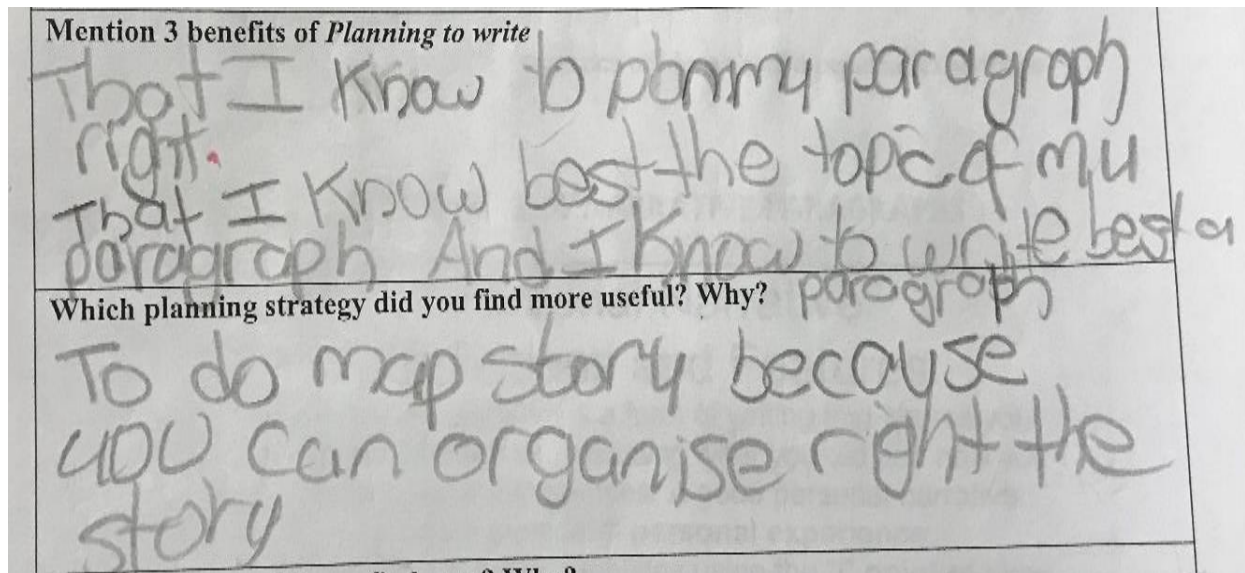 Mention 3 benefits of Planning to write
That I Know to plan my paragraph
right.
That I Know best the topic of my
paragraph And I Know to write best a
paragraph
Which planning strategy did you find more useful? Why?
To do map story because
you can organise right the
story